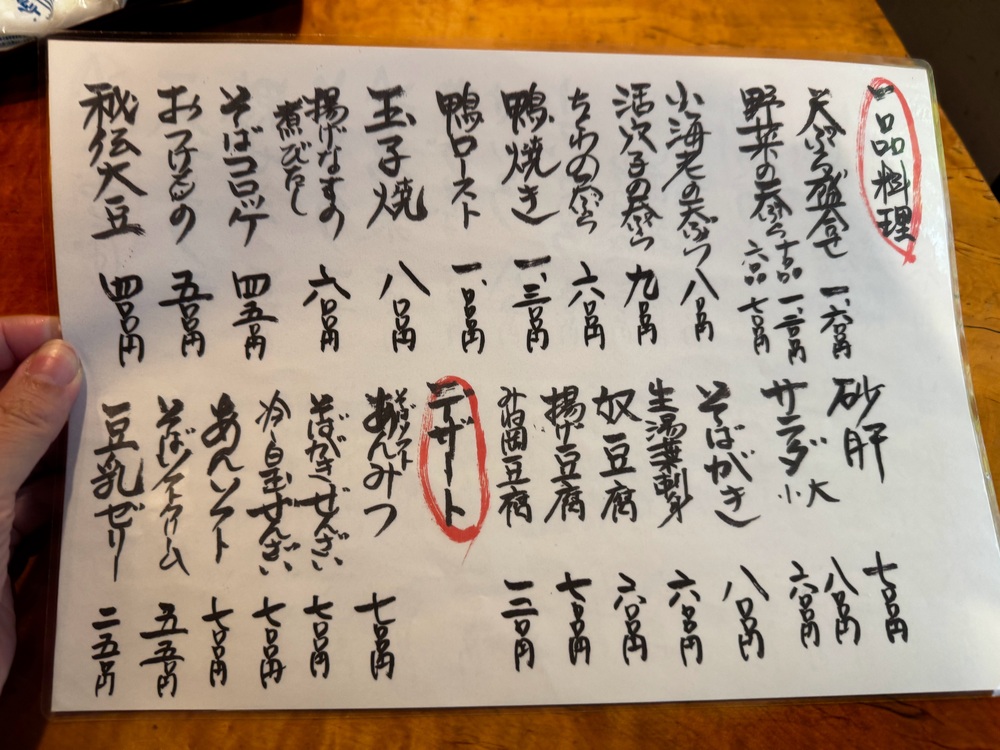 一品料理
天ぷら盛合せ 一、六〇〇円
野菜の天ぷら 十品 一、二〇〇円
六品 七〇〇円
小海老の天ぷら 八〇〇円
活穴子の天ぷら 九〇〇円
ちくわの天ぷら 六〇〇円
鴨焼き 一、三〇〇円
鴨ロースト 一、〇〇〇円
玉子焼 八〇〇円
揚げなすの
煮びたし 六〇〇円
そばコロッケ 四五〇円
おつけもの 五〇〇円
秘伝大豆 四〇〇円
砂肝 七〇〇円
サラダ 大 八〇〇円
小 六〇〇円
そばがき 八〇〇円
生湯葉刺身 六〇〇円
奴豆腐 六〇〇円
揚げ豆腐 七〇〇円
みね岡豆腐 三〇〇円
デザート
そばソフト
あんみつ 七〇〇円
そばがきぜんざい 七〇〇円
冷白玉ぜんざい 七〇〇円
あんソフト 七〇〇円
そばソフトクリーム 五五〇円
豆乳ゼリー 二五〇円